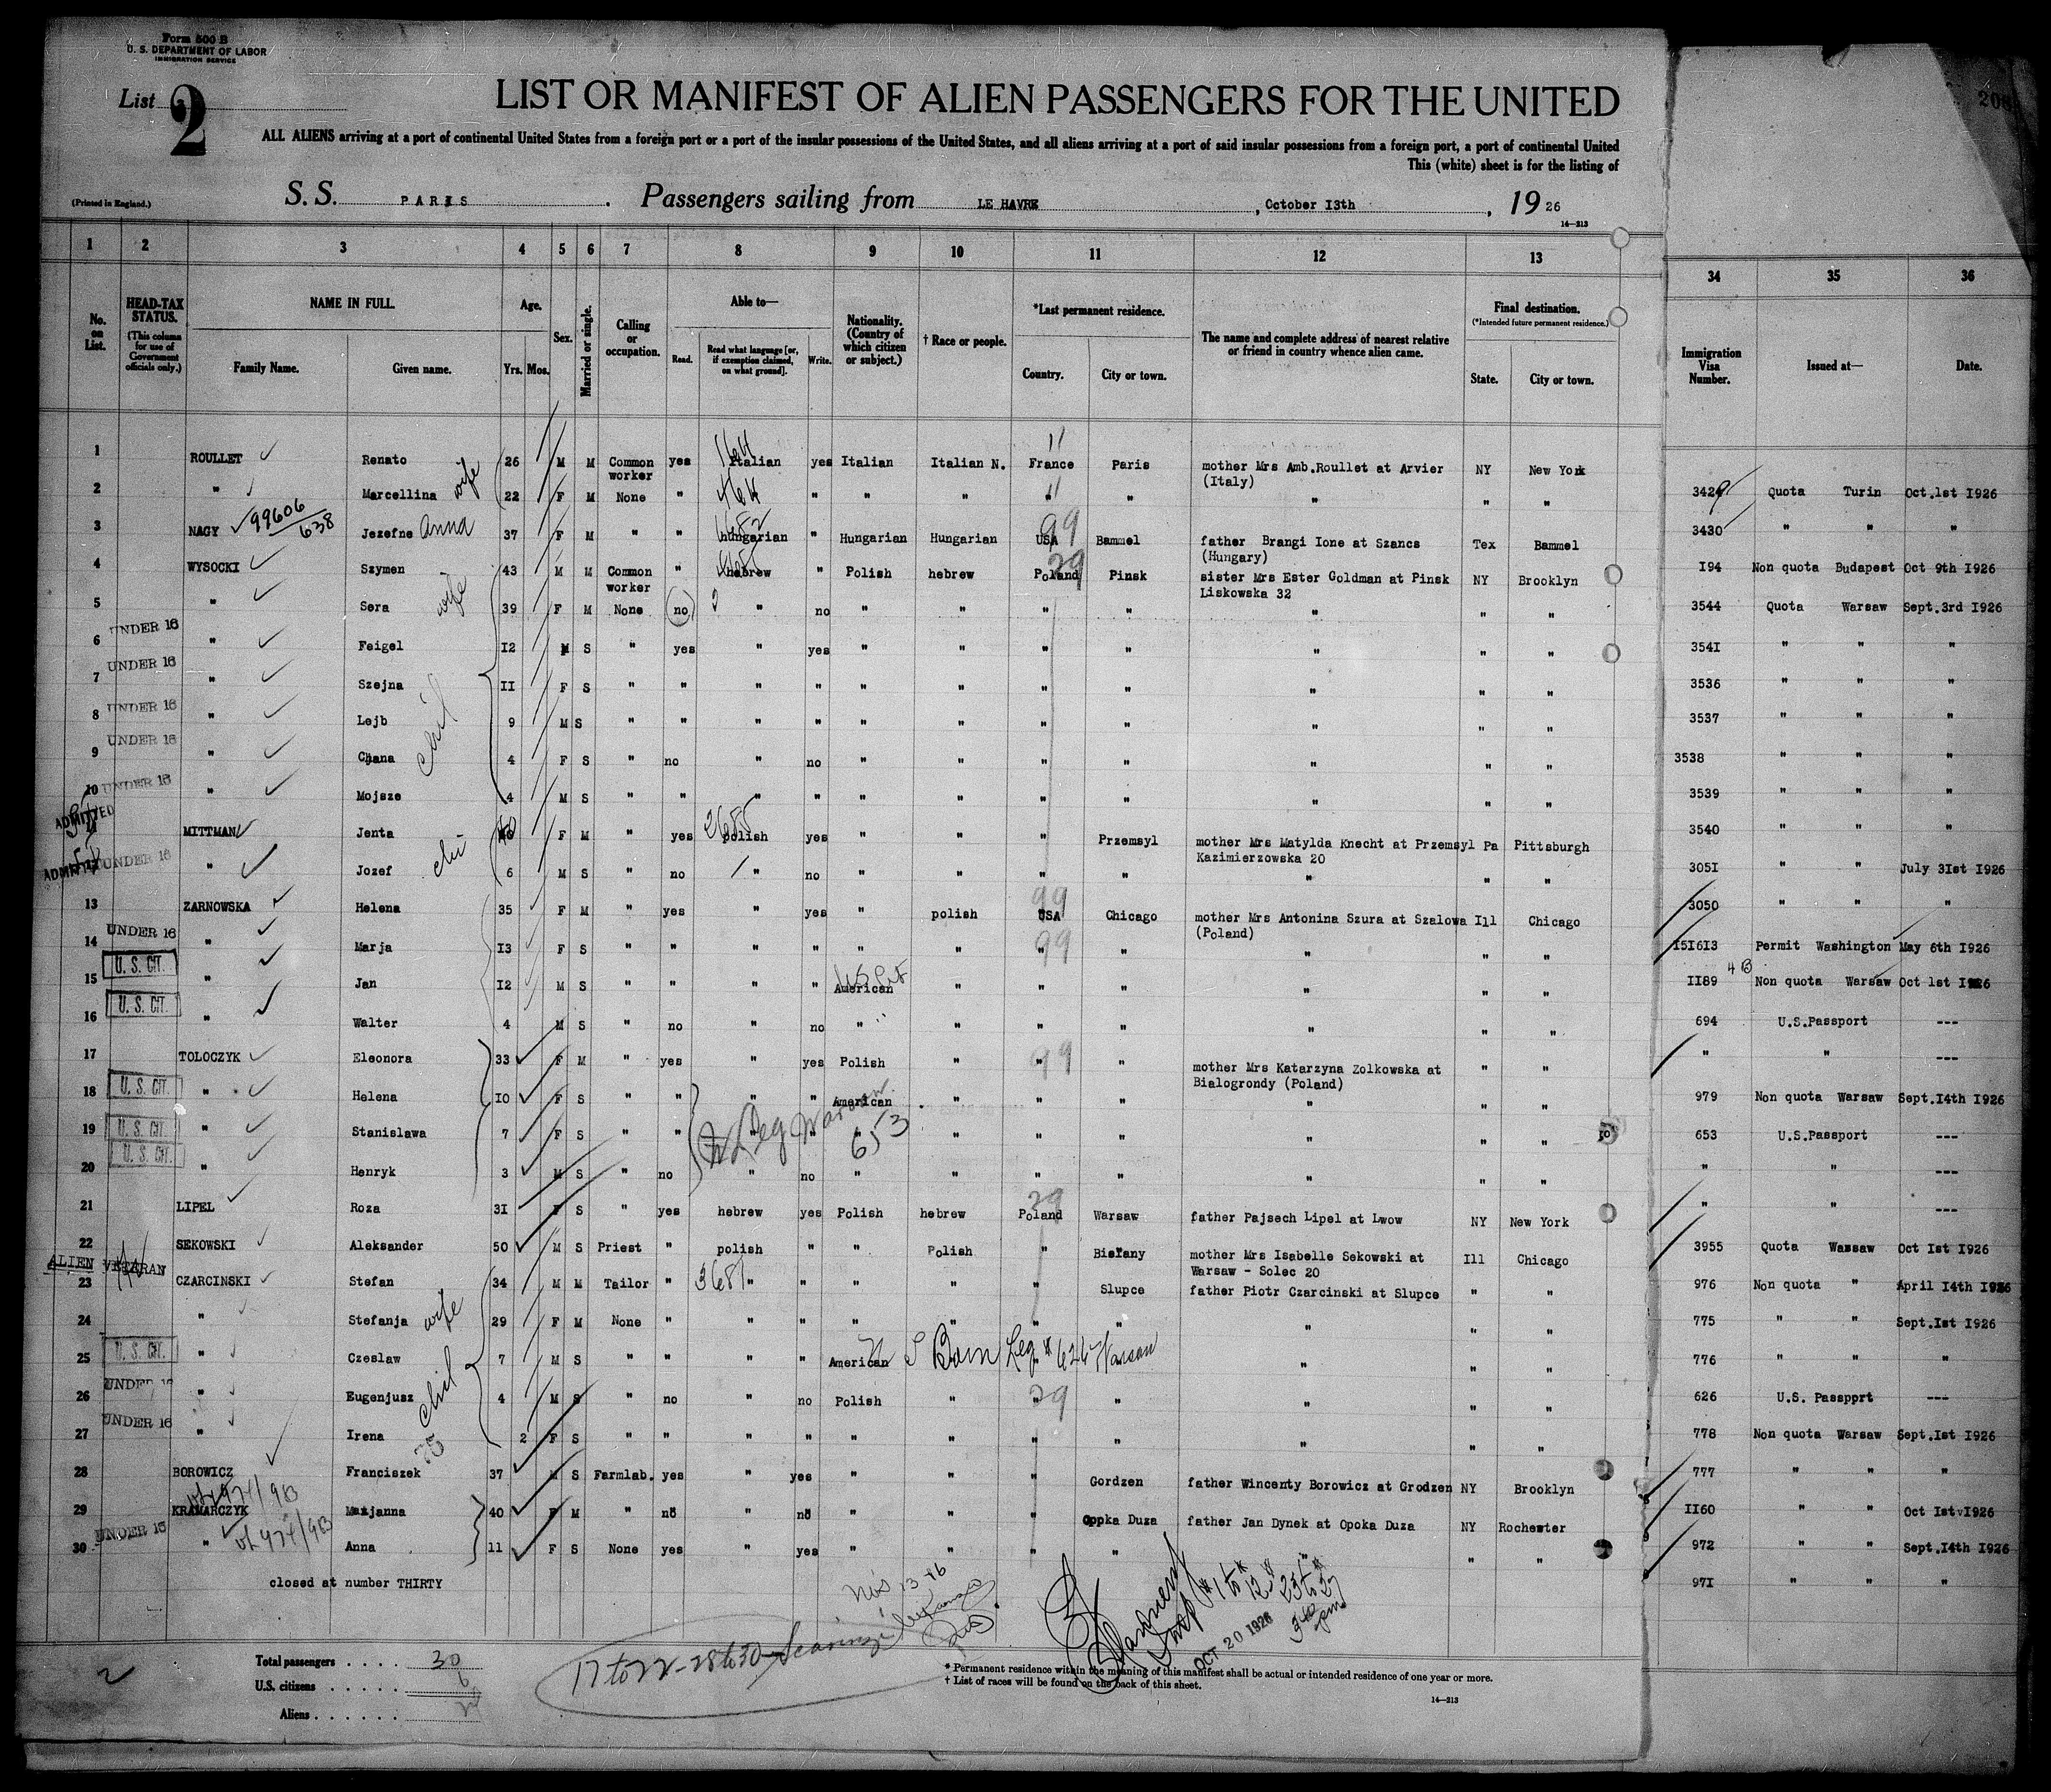 Form 500 B
U. S. DEPARTMENT OF LABOR
IMMIGRATION SERVICE
List 2
LIST OR MANIFEST OF ALIEN PASSENGERS FOR THE UNITED
208
ALL ALIENS arriving at a port of continental United States from a foreign port or a port of the insular possessions of the United States, and all aliens arriving at a port of said insular possessions from a foreign port, a port of continental United
This (white) sheet is for the listing of
(Printed in England.) S. S. PARIS . Passengers sailing from LE HAVRE , October I3th , 19 26
14—213
1 2 3 4 5 6 7 8 9 10 11 12 13 34 35 36
No. on List. HEAD-TAX STATUS. (This column for use of Government officials only.) NAME IN FULL. Family Name. Given name. Age. Yrs. Mos. Sex. Married or single. Calling or occupation. Able to— Read. Read what language [or, if exemption claimed, on what ground]. Write. Nationality. (Country of which citizen or subject.) † Race or people. *Last permanent residence. Country. City or town. The name and complete address of nearest relative or friend in country whence alien came. Final destination. (*Intended future permanent residence.) State. City or town. Immigration Visa Number. Issued at— Date.
1 ROULLET Renato 26 M M Common worker yes Italian yes Italian Italian N. France Paris mother Mrs Amb.Roullet at Arvier (Italy) NY New York
2 " Marcellina wife 22 F M None " " " " " " " " " 3429 Quota Turin Oct.1st I926
3 NAGY 99606/638 Jezefne Anna 37 F M " " hungarian " Hungarian Hungarian USA Bammel father Brangi Ione at Szancs (Hungary) Tex Bammel 3430 " " "
4 WYSOCKI Szymen 43 M M Common worker " hebrew " Polish hebrew Poland Pinsk sister Mrs Ester Goldman at Pinsk Liskowska 32 NY Brooklyn I94 Non quota Budapest Oct 9th I926
5 " Sora wife 39 F M None no " no " " " " " " " 3544 Quota Warsaw Sept.3rd I926
UNDER 16
6 " Feigel I2 M S " yes " yes " " " " " " " 354I " " "
UNDER 16
7 " Szejna II F S " " " " " " " " " " " 3536 " " "
UNDER 16
8 " Lejb 9 M S " " " " " " " " " " " 3537 " " "
UNDER 16
9 " Chana chil 4 F S " no " no " " " " " " " 3538 " " "
UNDER 16
10 " Mojsze 4 M S " " " " " " " " " " " 3539 " " "
ADMITTED
11 MITTMAN Jenta 40 F M " yes polish yes " " " Przemsyl mother Mrs Matylda Knecht at Przemsyl Kazimierzowska 20 Pa Pittsburgh 3540 " " "
ADMITTED UNDER 16
12 " Jozef 6 M S " no " no " " " " " " " 305I " " July 3Ist I926
13 ZARNOWSKA Helena 35 F M " yes " yes " polish USA Chicago mother Mrs Antonina Szura at Szalowa (Poland) Ill Chicago 3050 " " "
UNDER 16
14 " Marja I3 F S " " " " " " " " " " " I5I6I3 Permit Washington May 6th I926
U. S. CIT.
15 " Jan I2 M S " " " " American " " " " " " II89 Non quota Warsaw Oct 1st I926
U. S. CIT.
16 " Walter 4 M S " no " no " " " " " " " 694 U.S.Passport ---
17 TOLOCZYK Eleonora 33 F M " yes " yes Polish " " " mother Mrs Katarzyna Zolkowska at Bialogrondy (Poland) " " " " ---
U. S. CIT.
18 " Helena IO F S " " " " American " " " " " " 979 Non quota Warsaw Sept.I4th I926
U. S. CIT.
19 " Stanislawa 7 F S " " " " " " " " " " " 653 U.S.Passport ---
U. S. CIT.
20 " Henryk 3 M S " no " no " " " " " " " " " ---
21 LIPEL Roza 3I F S " yes hebrew yes Polish hebrew Poland Warsaw father Pajsech Lipel at Lwow NY New York " " ---
22 SEKOWSKI Aleksander 50 M S Priest " polish " " Polish " Bielany mother Mrs Isabelle Sekowski at Warsaw - Solec 20 Ill Chicago 3955 Quota Warsaw Oct Ist I926
ALIEN VETERAN
23 CZARCINSKI Stefan 34 M M Tailor " " " " " " Slupce father Piotr Czarcinski at Slupce " " 976 Non quota " April I4th I926
24 " Stefanja wife 29 F M None " " " " " " " " " " 775 " " Sept.Ist I926
U. S. CIT.
25 " Czeslaw 7 M S " " " " American " " " " " " 776 " " "
UNDER 16
26 " Eugenjusz chil 4 M S " no " no Polish " " " " " " 626 U.S. Passpprt ---
UNDER 16
27 " Irena 2 F S " " " " " " " " " " 778 Non quota Warsaw Sept.Ist I926
28 BOROWICZ Franciszek 37 M S Farmlab. yes " yes " " " Gordzen father Wincenty Borowicz at Grodzen NY Brooklyn 777 " " "
29 KRAMARCZYK Marjanna 40 F M " no " no " " " Oppka Duza father Jan Dynek at Opoka Duza NY Rochester II60 " " Oct Ist I926
UNDER 16
30 " Anna 11 F S None yes " yes " " " " " " " 972 " " Sept.I4th I926
closed at number THIRTY 97I " " "
OCT 20 1926
17 to 22-28 to 30
Total passengers . . . . 30
U.S. citizens . . . . . 6
Aliens . . . . . . 24
* Permanent residence within the meaning of this manifest shall be actual or intended residence of one year or more.
† List of races will be found on the back of this sheet.
14—213